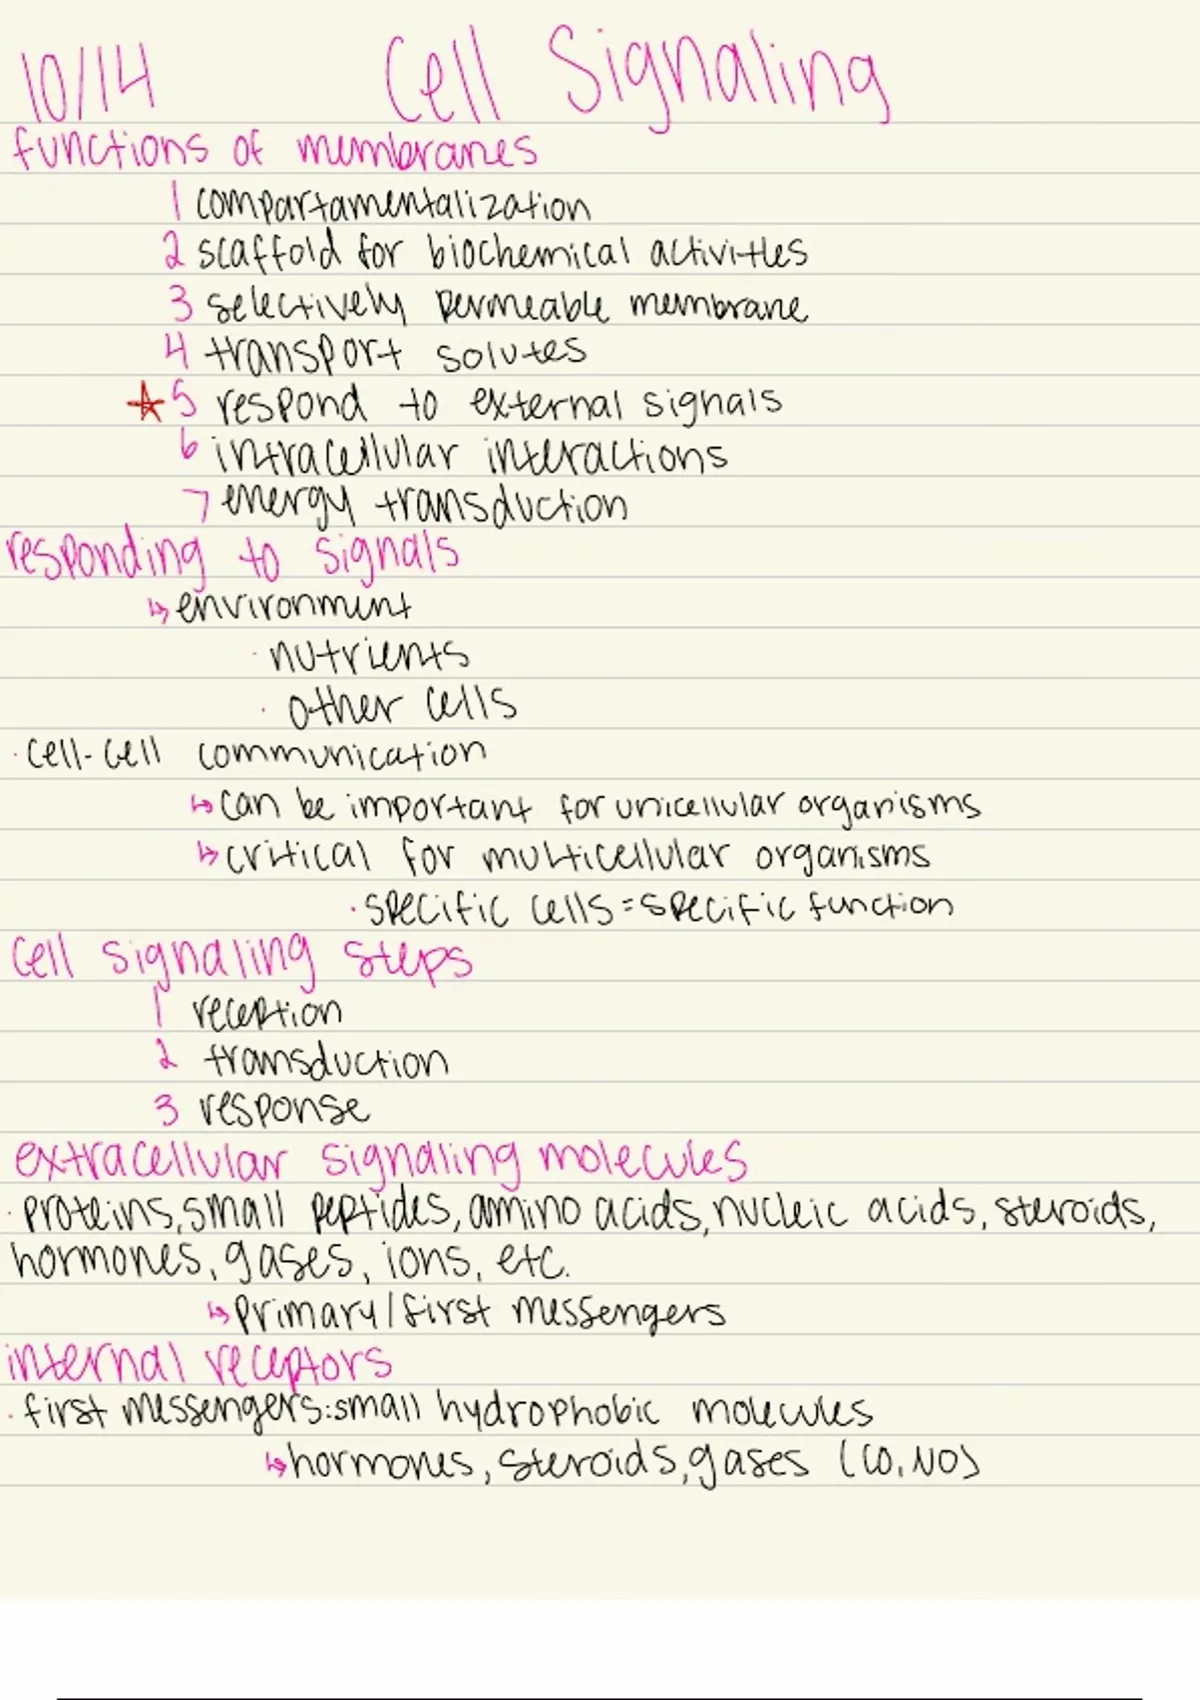 10/14 Cell Signaling
functions of membranes
1 compartamentalization
2 scaffold for biochemical activities
3 selectively permeable membrane
4 transport solutes
5 respond to external signals
6 intracellular interactions
7 energy transduction
responding to signals
↳ environment
· nutrients
· other cells
· cell-cell communication
↳ can be important for unicellular organisms
↳ critical for multicellular organisms
· specific cells = specific function
cell signaling steps
1 reception
2 transduction
3 response
extracellular signaling molecules
· proteins, small peptides, amino acids, nucleic acids, steroids,
hormones, gases, ions, etc.
↳ primary/first messengers
internal receptors
· first messengers: small hydrophobic molecules
↳ hormones, steroids, gases (CO, NO)